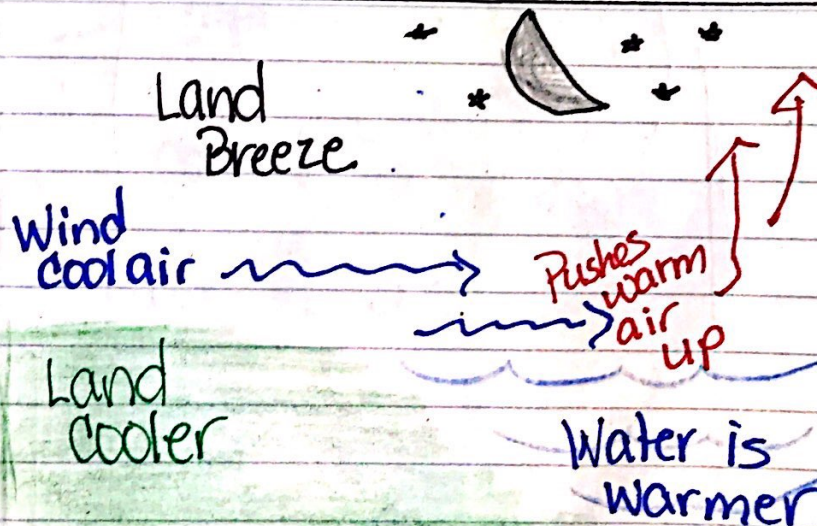 Land
Breeze
Wind
cool air
Pushes
warm
air
up
Land
Cooler
Water is
warmer